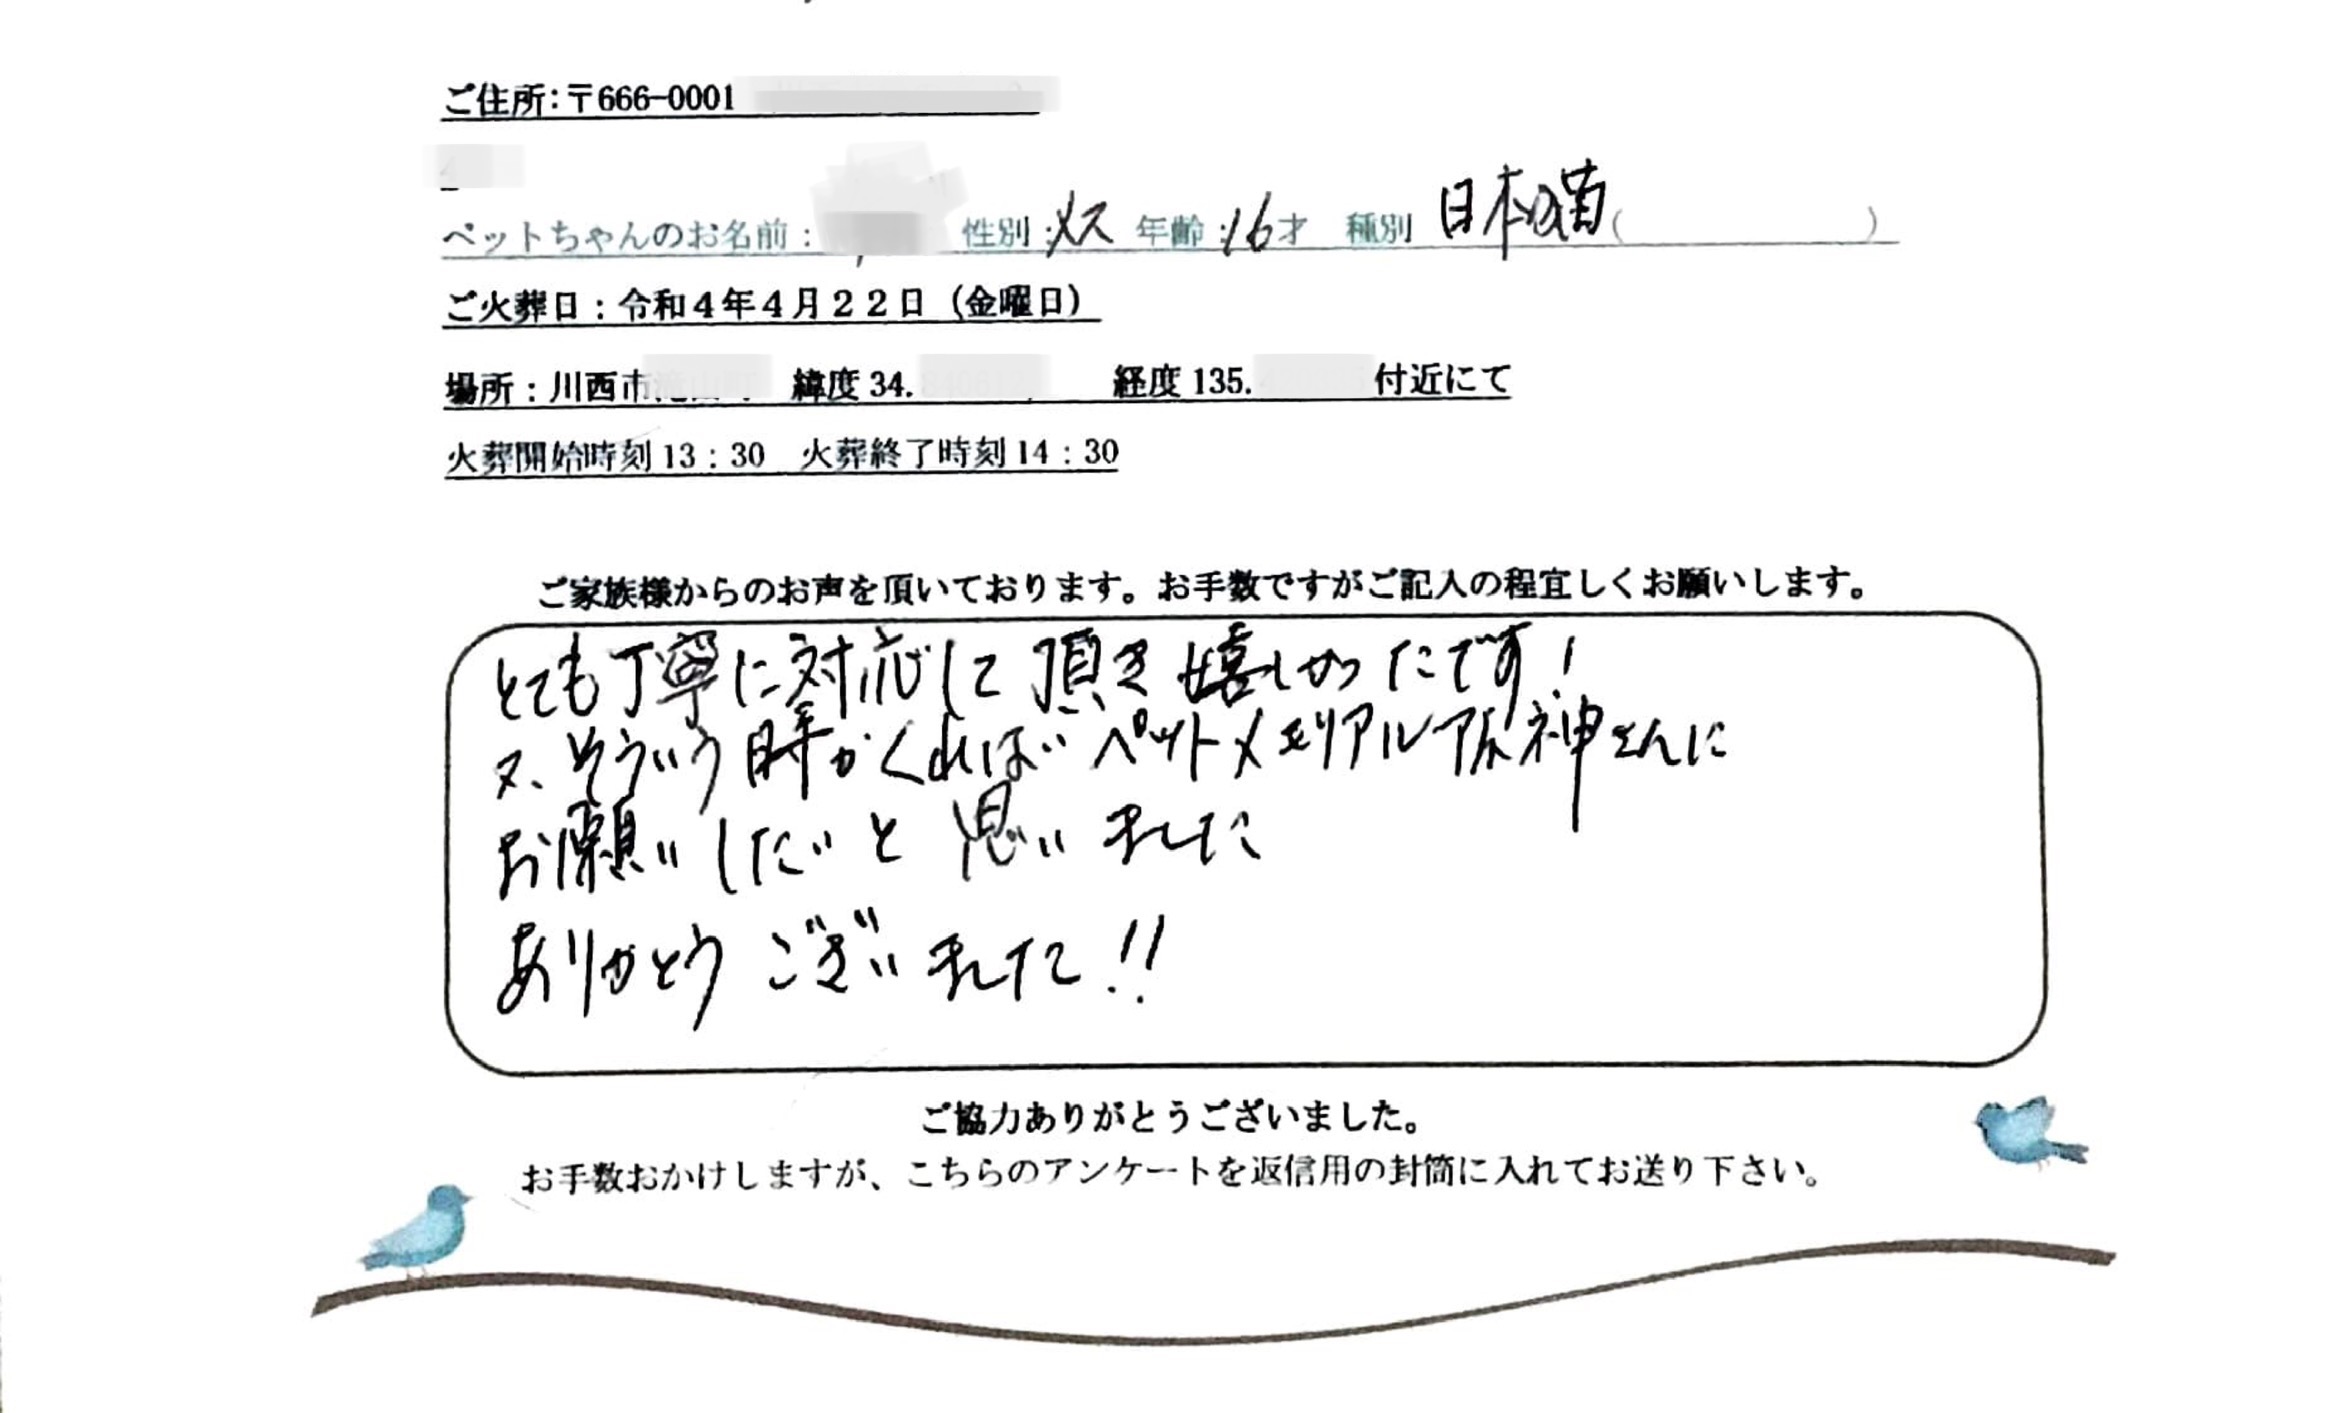 ご住所：〒666-0001
ペットちゃんのお名前： 性別：メス 年齢：16才 種別 日本猫( )
ご火葬日：令和４年４月２２日（金曜日）
場所：川西市 緯度34. 経度135. 付近にて
火葬開始時刻13：30 火葬終了時刻14：30
ご家族様からのお声を頂いております。お手数ですがご記入の程宜しくお願いします。
とても丁寧に対応して頂き嬉しかったです！
又、そういう時がくればペットメモリアル阪神さんに
お願いしたいと思いました
ありがとうございました!!
ご協力ありがとうございました。
お手数おかけしますが、こちらのアンケートを返信用の封筒に入れてお送り下さい。